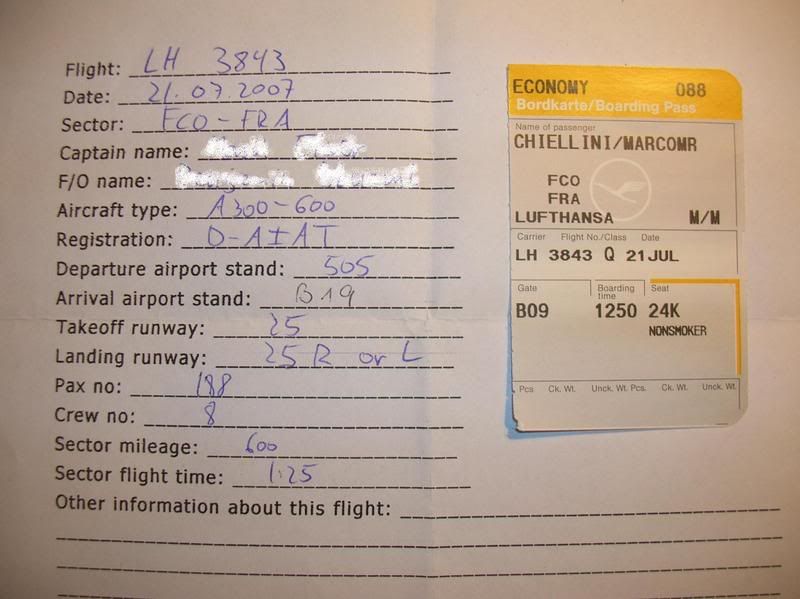 Flight: LH 3843
Date: 21.07.2007
Sector: FCO-FRA
Captain name:
F/O name:
Aircraft type: A300-600
Registration: D-AIAT
Departure airport stand: 505
Arrival airport stand: B19
Takeoff runway: 25
Landing runway: 25 R or L
Pax no: 188
Crew no: 8
Sector mileage: 600
Sector flight time: 1:25
Other information about this flight:
ECONOMY 088
Bordkarte/Boarding Pass
Name of passenger
CHIELLINI/MARCOMR
FCO
FRA
LUFTHANSA M/M
Carrier Flight No./Class Date
LH 3843 Q 21JUL
Gate Boarding time Seat
B09 1250 24K
NONSMOKER
Pcs Ck. Wt. Unck. Wt. Pcs. Ck. Wt. Unck. Wt.